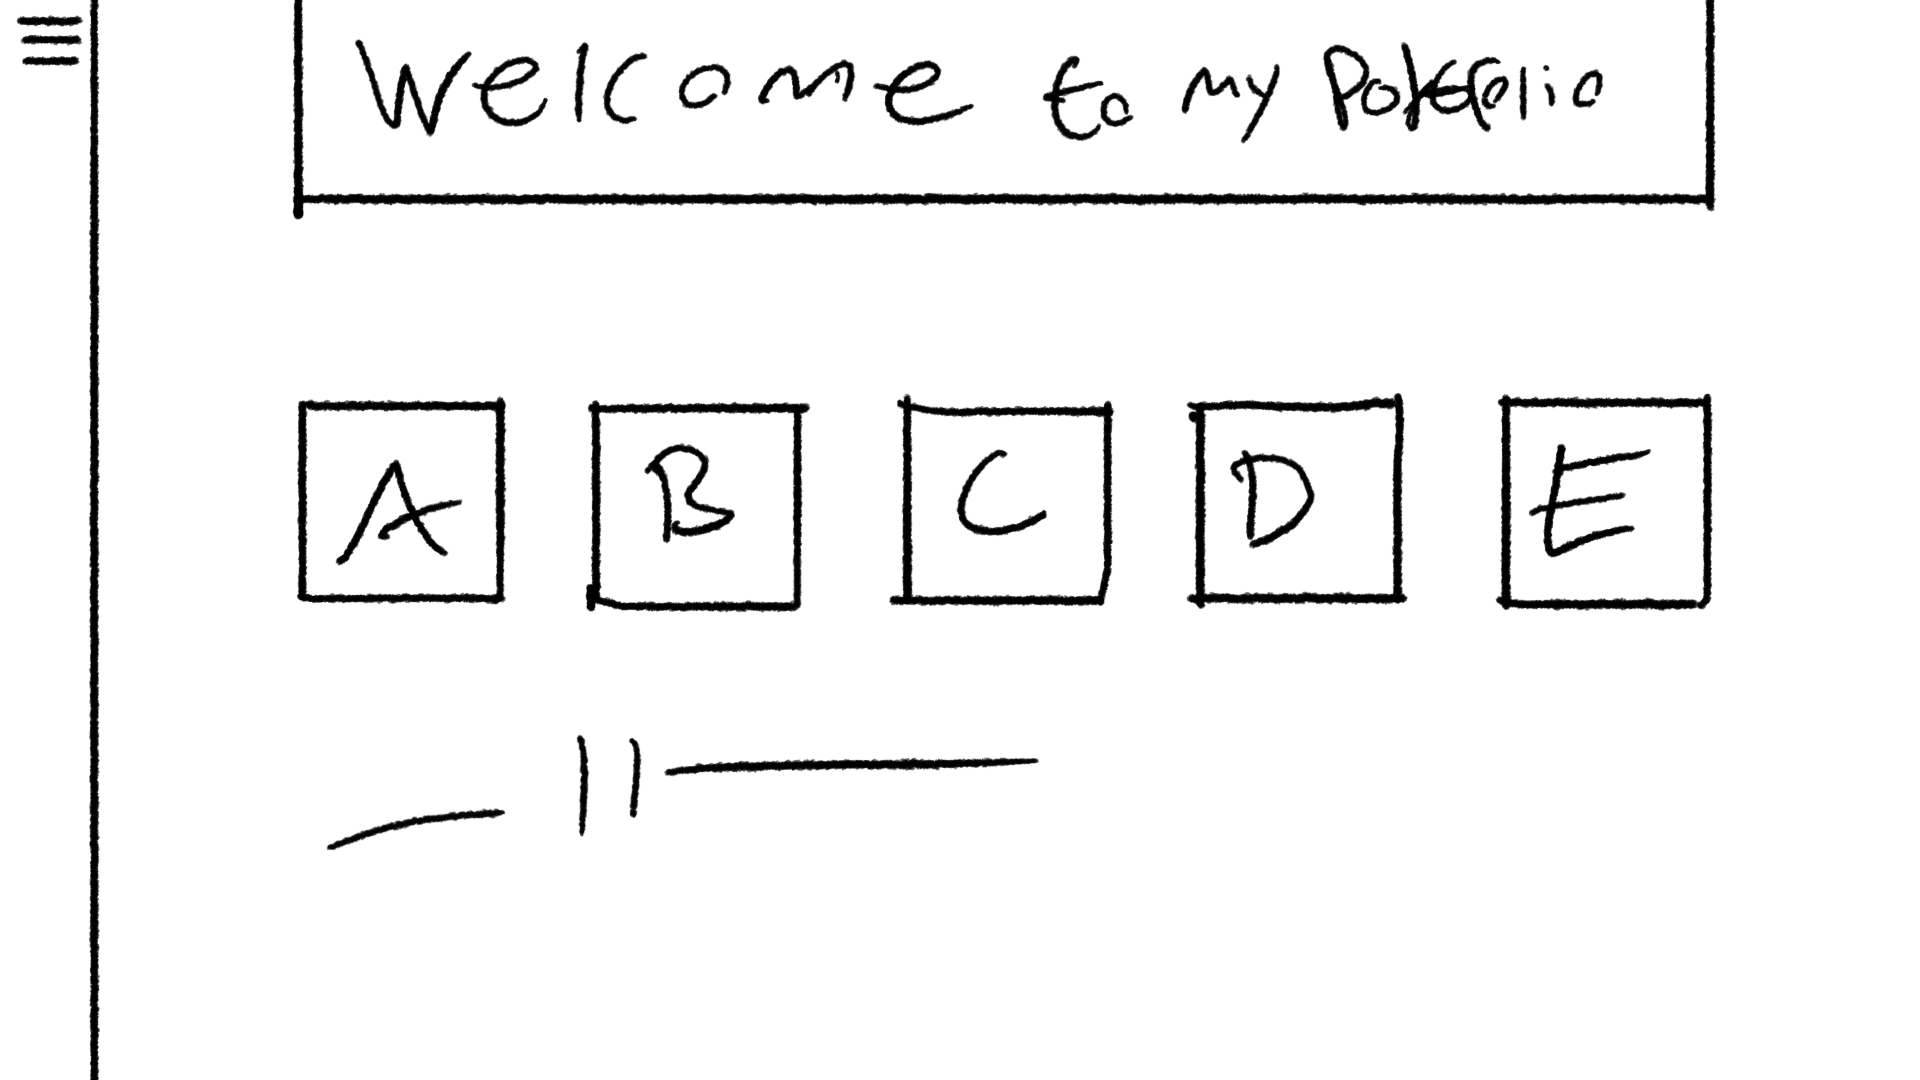 Welcome to my Potfolio
A B C D E